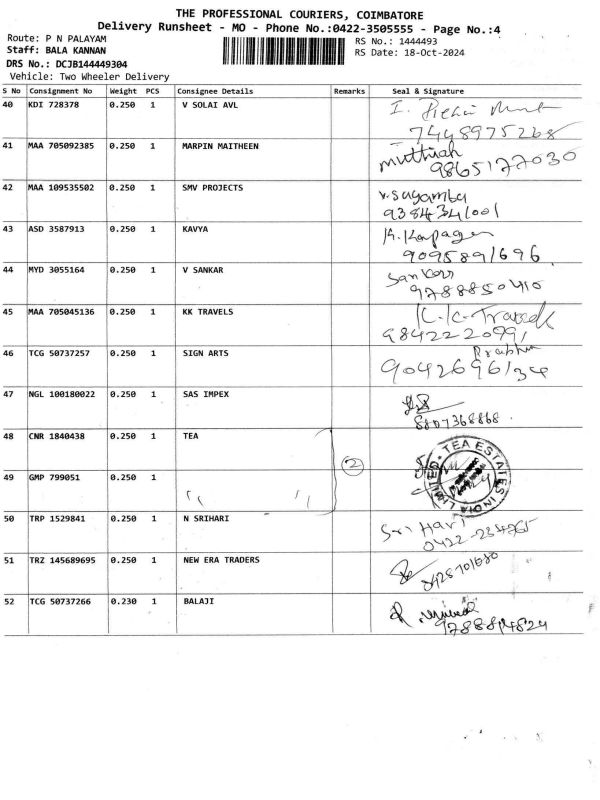 THE PROFESSIONAL COURIERS, COIMBATORE
Delivery Runsheet - MO - Phone No.:0422-3505555 - Page No.:4
Route: P N PALAYAM
Staff: BALA KANNAN
DRS No.: DCJB144449304
Vehicle: Two Wheeler Delivery
RS No.: 1444493
RS Date: 18-Oct-2024
S No Consignment No Weight PCS Consignee Details Remarks Seal & Signature
40 KDI 728378 0.250 1 V SOLAI AVL
7448975268
41 MAA 705092385 0.250 1 MARPIN MAITHEEN muthiah
9865177030
42 MAA 109535502 0.250 1 SMV PROJECTS
9384341001
43 ASD 3587913 0.250 1 KAVYA
9095891696
44 MYD 3055164 0.250 1 V SANKAR Sankar
9788850410
45 MAA 705045136 0.250 1 KK TRAVELS K.K. Travels
9842220991
46 TCG 50737257 0.250 1 SIGN ARTS Prabhu
9042696134
47 NGL 100180022 0.250 1 SAS IMPEX
8807368868
48 CNR 1840438 0.250 1 TEA
2
TEA ESTATES INDIA LIMITED
49 GMP 799051 0.250 1 " "
50 TRP 1529841 0.250 1 N SRIHARI Sri Hari
0422-234265
51 TRZ 145689695 0.250 1 NEW ERA TRADERS
52 TCG 50737266 0.230 1 BALAJI